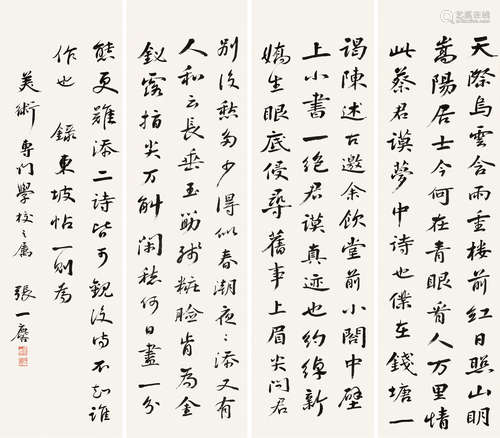 天際烏雲含雨重樓前紅日照山明
嵩陽居士今何在青眼看人万里情
此蔡君謨夢中詩也僕在錢塘一
謁陳述古邀余飲堂前小閣中壁
上小書一絕君謨真迹也約綽新
嬌生眼底侵尋舊事上眉尖问君
別後愁多少得似春潮夜々添又有
人和云長垂玉筯殘粧臉肯為金
釵露指尖万斛閑愁何日盡一分
態更難添二詩皆可觀後詩不知誰
作也 錄東坡帖一則為
美術專门學校之屬 張一麐